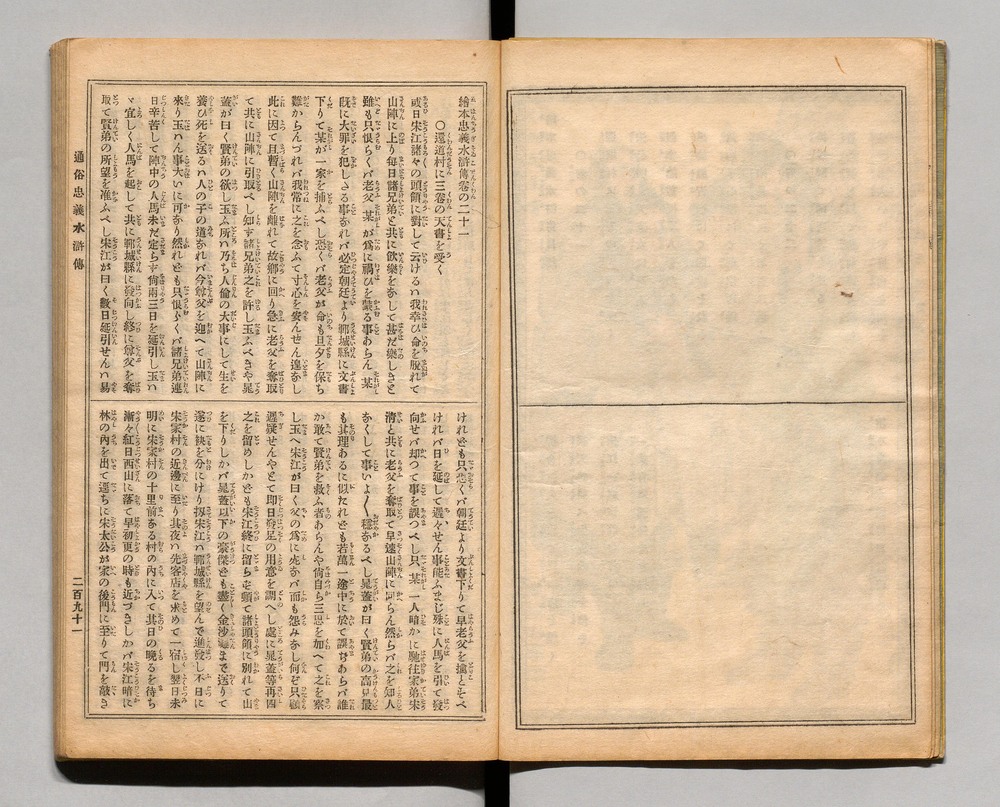 繪本忠義水滸傳卷の二十一
〇還道村に三卷の天書を受く
或日宋江諸々の頭領に對して云けるハ我幸ひ命を脱れて
山陣に上り毎日諸兄弟と共に飲樂をなして甚だ樂しきと
雖も只恨らくハ老父某が爲に禍ひを蒙る事あらん某
既に大罪を犯しさる事なれバ必定朝廷より鄆城縣に文書
下りて某が一家を捕ふべし恐くハ老父が命も旦夕を保ち
難からんづれバ我常に之を念ふて寸心を安んせん遑なし
此に因て且暫く山陣を離れて故鄕に回り急に老父を奪取
て共に山陣に引取べし知ず諸兄弟之を許し玉ふべきや晁
蓋が曰く賢弟の欲し玉ふ所ハ乃ち人倫の大事にして生を
養ひ死を送るハ人の子の道なれバ今尊父を迎へて山陣に
來り玉ハん事大いに可なり然れども只恨らくハ諸兄弟連
日辛苦して陣中の人馬未だ定らず尚兩三日を延引し玉ハ
ゞ宜しく人馬を起して共に鄆城縣に發向し終に尊父を奪
取て賢弟の所望を准ふべし宋江が曰く數日延引せんハ易
けれども只恐くハ朝廷より文書下りて早老父を擒とせべ
けれバ日を延して遲々せん事能ふまじ殊に人馬を引て發
向せバ却つて事を誤つべし只某一人暗かに馳往家弟宋
淸と共に老父を奪取て早速山陣に回らん然らバ之を知人
なくして事いよ〱穩なるべし晁蓋が曰く賢弟の高見最
も其理あるに似たれども若萬一途中に於て誤りあらバ誰
か敢て賢弟を救ふ者あらんや尚自ら三思を加へて之を察
し玉へ宋江が曰く父の爲に死なバ而も怨みなし何ぞ只顧
遲疑せんやとて即日發足の用意を調へし處に晁蓋等再四
之を留めしかども宋江終に留らず頓て諸頭領に別れて山
を下りしかバ晁蓋以下の豪傑ども盡く金沙灘まで送りて
遂に袂を分にけり扨宋江ハ鄆城縣を望んで進發し不日に
宋家村の近邊に至り其夜ハ先客店を求めて一宿し翌日未
明に宋家村の十里前なる村の內に入て其日の曉るを待ち
漸々紅日西山に落て早初更の時も近づきしかバ宋江暗に
林の內を出て遥ちに宋太公が家の後門に至りて門を敲き
通俗忠義水滸傳
二百九十一